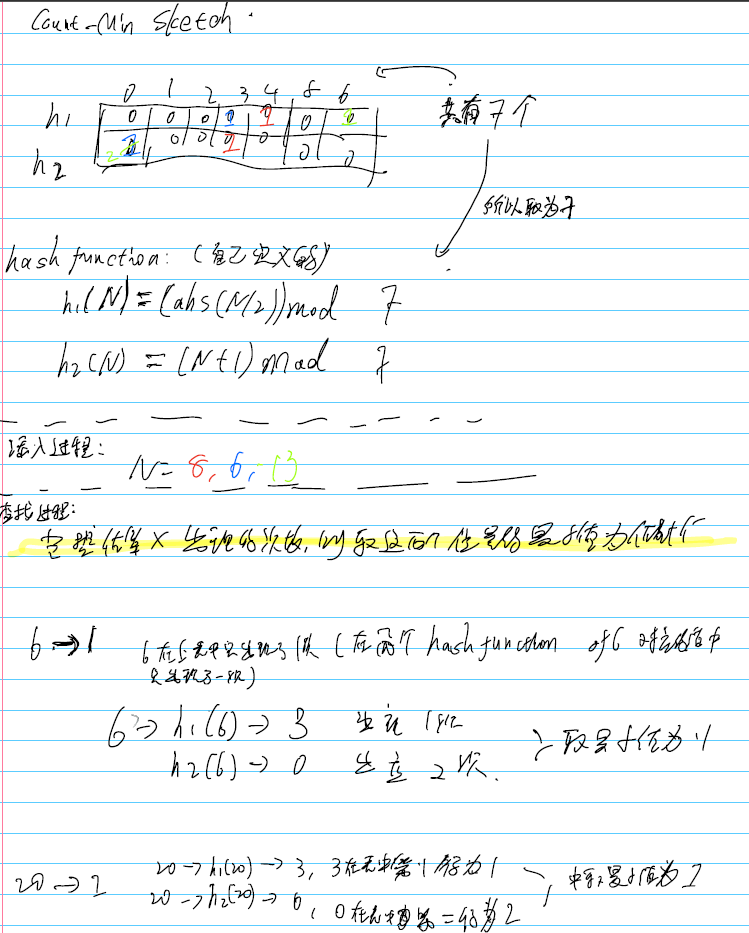 Count-Min Sketch.
0 1 2 3 4 8 6
h1 0 0 0 1 1 0 1
h2 2 0 0 1 0 0 0
共有 7 个
所以取为 7
hash function: (自己定义的)
h1(N) = (abs(N/2)) mod 7
h2(N) = (N+1) mod 7
插入过程:
N = 8, 6, -13
查找过程:
X 出现的次数, 则取这两个位置的最小值为
6 → 1 6在 中只出现了1次 (在两个 hash function of 6 对应的值中
只出现了一次)
6 → h1(6) → 3 出现 1次
h2(6) → 0 出现 2次.
取最小值为 1
20 → 1 20 → h1(20) → 3, 3在表中第1行为 1
20 → h2(20) → 0, 0在表中第二行为 2
最小值为 1